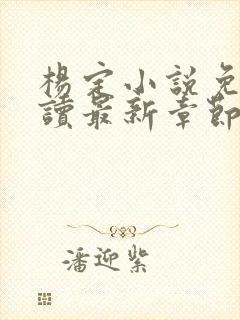 楊定小說免
讀最新章節
潘迎紫